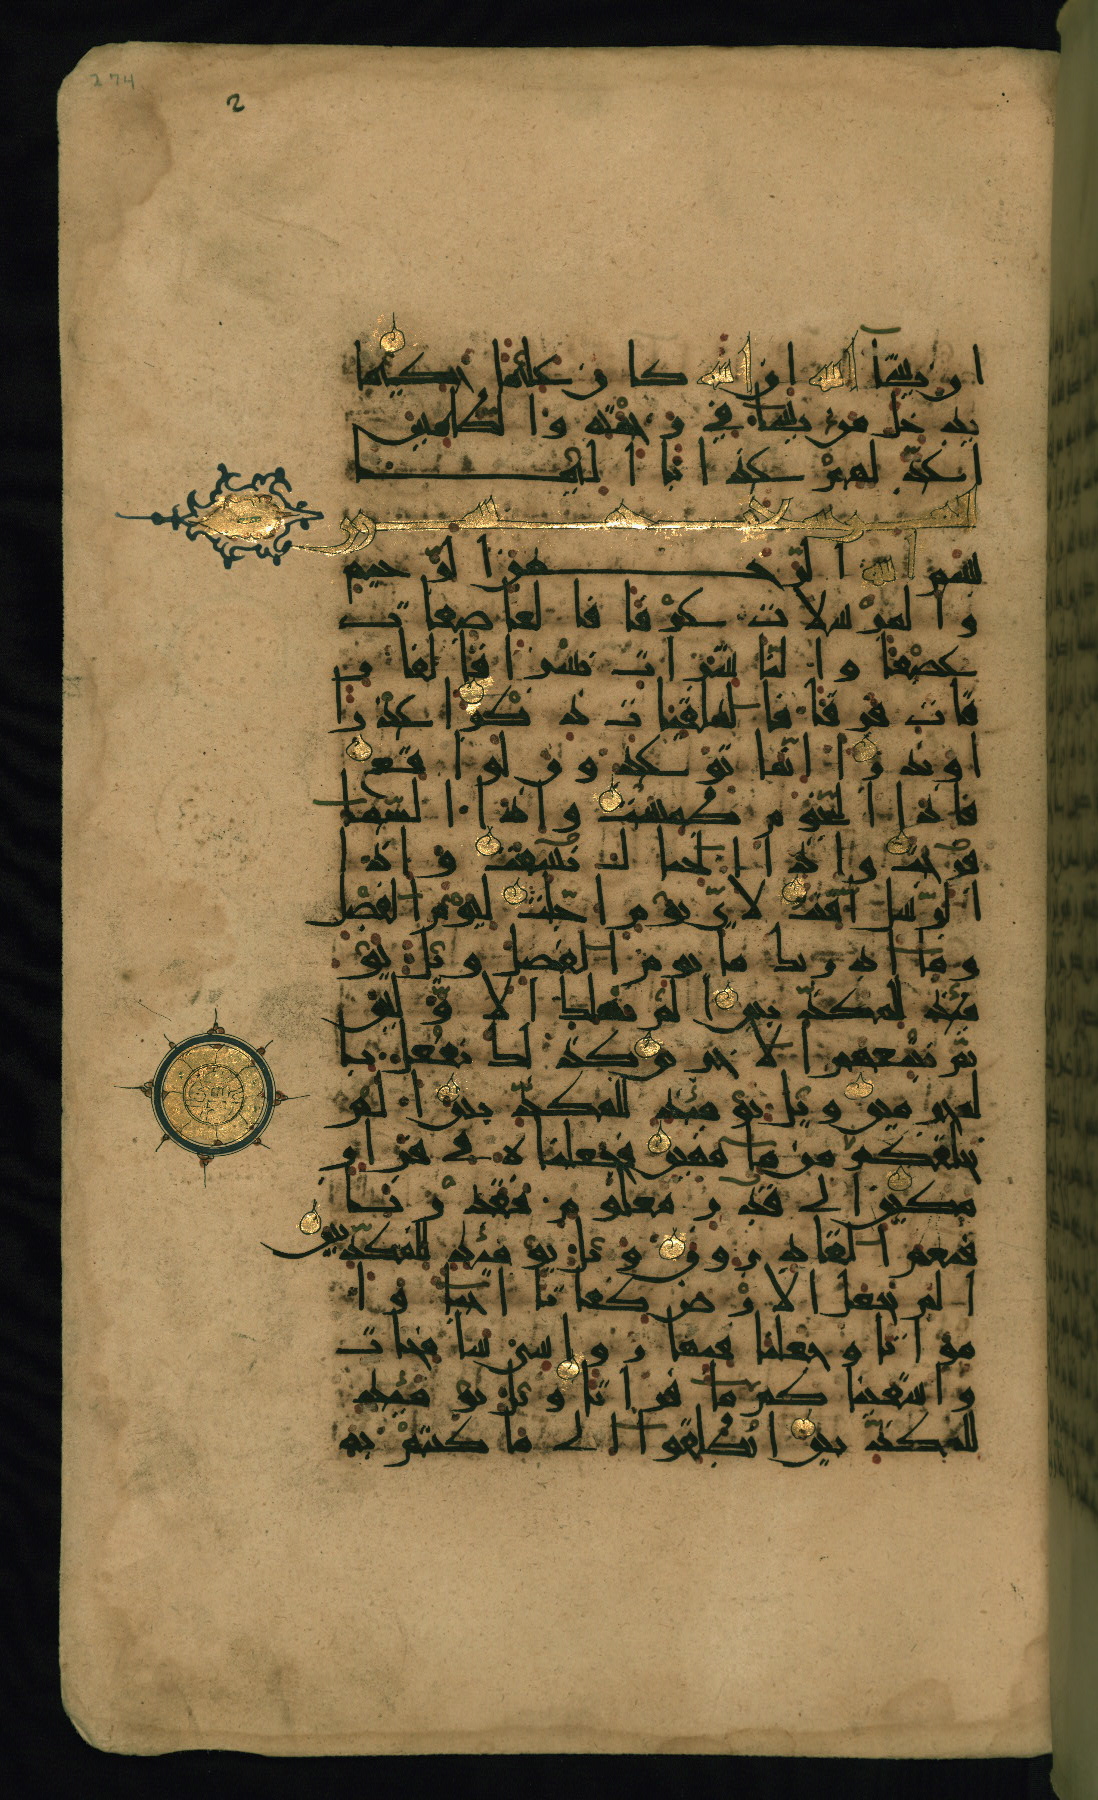 274
2
ان يشآ الله ان الله كان عليما حكيما
يدخل من يشا في رحمته والظلمين
اعد لهم عذابا اليما
المرسلات خمسون
بسم الله الرحمن الرحيم
والمرسلات عرفا فالعاصفات
عصفا والناشرات نشرا فالفار
قات فرقا فالملقيات ذكرا عذرا
او نذرا انما توعدون لواقع
فاذا النجوم طمست واذا السما
فرجت واذا الجبال نسفت واذا
الرسل اقتت لاي يوم اجلت ليوم الفصل
وما ادريك ما يوم الفصل ويل يو
مئذ للمكذبين الم نهلك الاولين
ثم نتبعهم الاخرين كذلك نفعل با
لمجرمين ويل يومئذ للمكذبين الم
نخلقكم من ما مهين فجعلناه في قرار
مكين الى قدر معلوم فقدرنا
فنعم القادرون ويل يومئذ للمكذبين
الم نجعل الارض كفاتا احيا وا
مواتا وجعلنا فيها رواسي شامخات
واسقيناكم ما فراتا ويل يومئذ
للمكذبين انطلقوا الى ما كنتم به